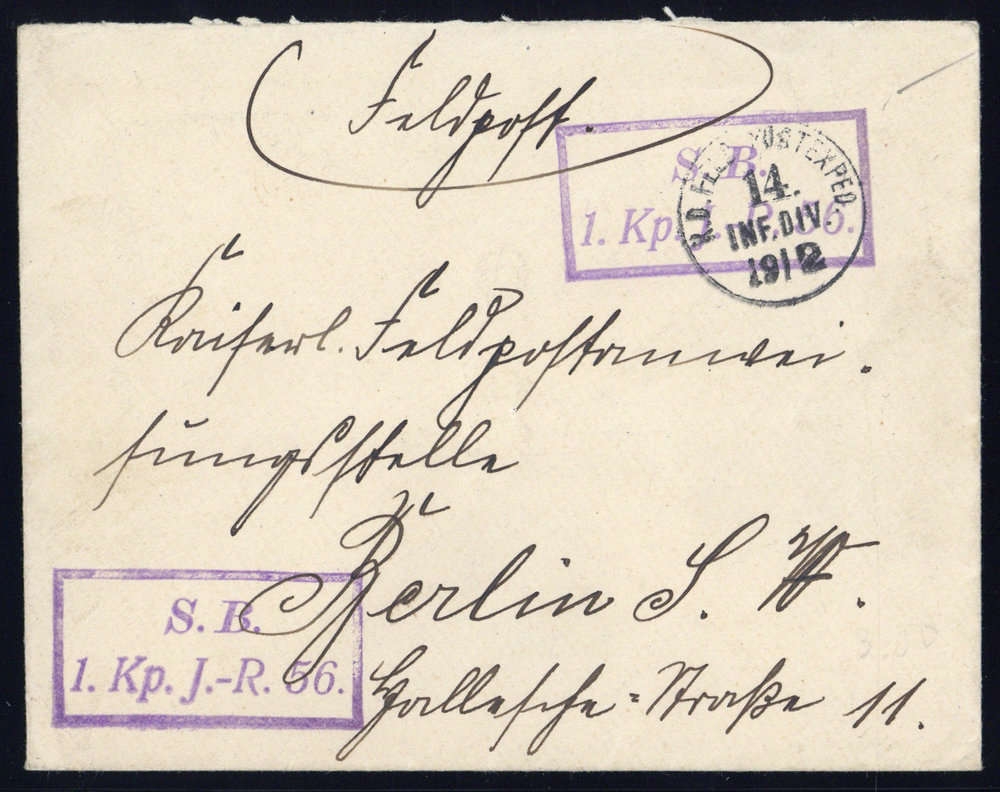 Feldpost.
S. B.
1. Kp. J.-R. 56.
K.D. FELD-POSTEXPED.
14.
INF. DIV.
19/2
Kaiserl. Feldpostanwei-
sungsstelle
Berlin S. W.
Hallesche-Straße 11.
S. B.
1. Kp. J.-R. 56.